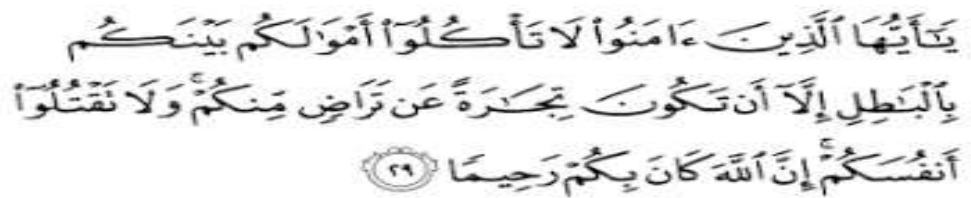 يَـٰٓأَيُّهَا ٱلَّذِينَ ءَامَنُوا۟ لَا تَأْكُلُوٓا۟ أَمْوَٰلَكُم بَيْنَكُم
بِٱلْبَـٰطِلِ إِلَّآ أَن تَكُونَ تِجَـٰرَةً عَن تَرَاضٍ مِّنكُمْ ۚ وَلَا تَقْتُلُوٓا۟
أَنفُسَكُمْ ۚ إِنَّ ٱللَّهَ كَانَ بِكُمْ رَحِيمًا ٢٩